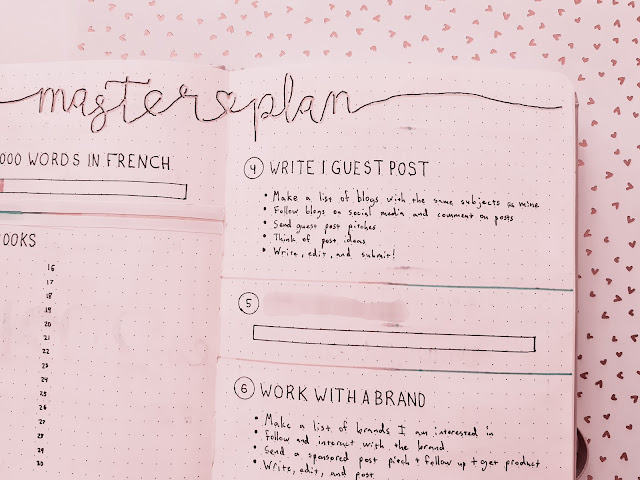 master plan
000 WORDS IN FRENCH
OOKS
16
17
18
19
20
21
22
23
24
25
26
27
28
29
30
4 WRITE 1 GUEST POST
• Make a list of blogs with the same subjects as mine
• Follow blogs on social media and comment on posts
• Send guest post pitches
• Think of post ideas
• Write, edit, and submit!
5
6 WORK WITH A BRAND
• Make a list of brands I am interested in
• Follow and interact with the brand
• Send a sponsored post pitch + follow up + get product
• Write, edit, and post